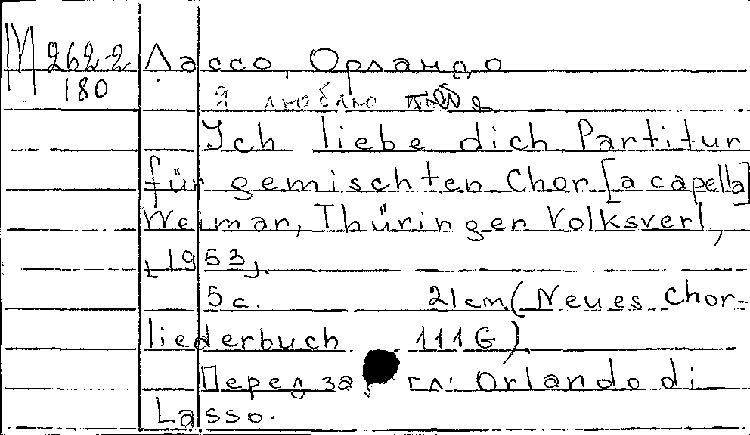 М 262-2 Лассо, Орландо
180
Я люблю тебя
Ich liebe dich Partitur
für gemischten Chor [a capella]
Weimar, Thüringer Volksverl,
[1953].
5 с. 21 cm (Neues Chor-
liederbuch 111G)
Перед гл: Orlando di
Lasso.